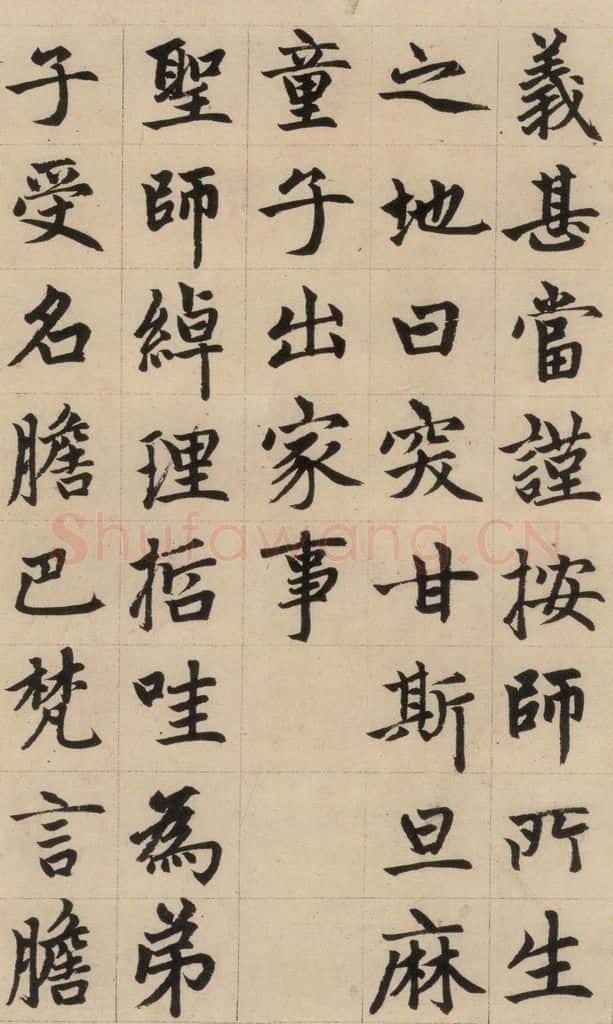 義甚當謹按師所生
之地曰突甘斯旦麻
童子出家事
聖師綽理哲哇為弟
子受名膽巴梵言膽
Shufawang.CN